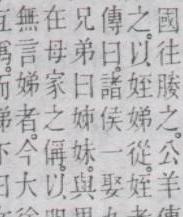 國往媵之。公羊
之。以姪娣從。姪
傳曰。諸侯一娶
兄弟曰姊妹。與
在母家之偁。以
無言娣者。今大